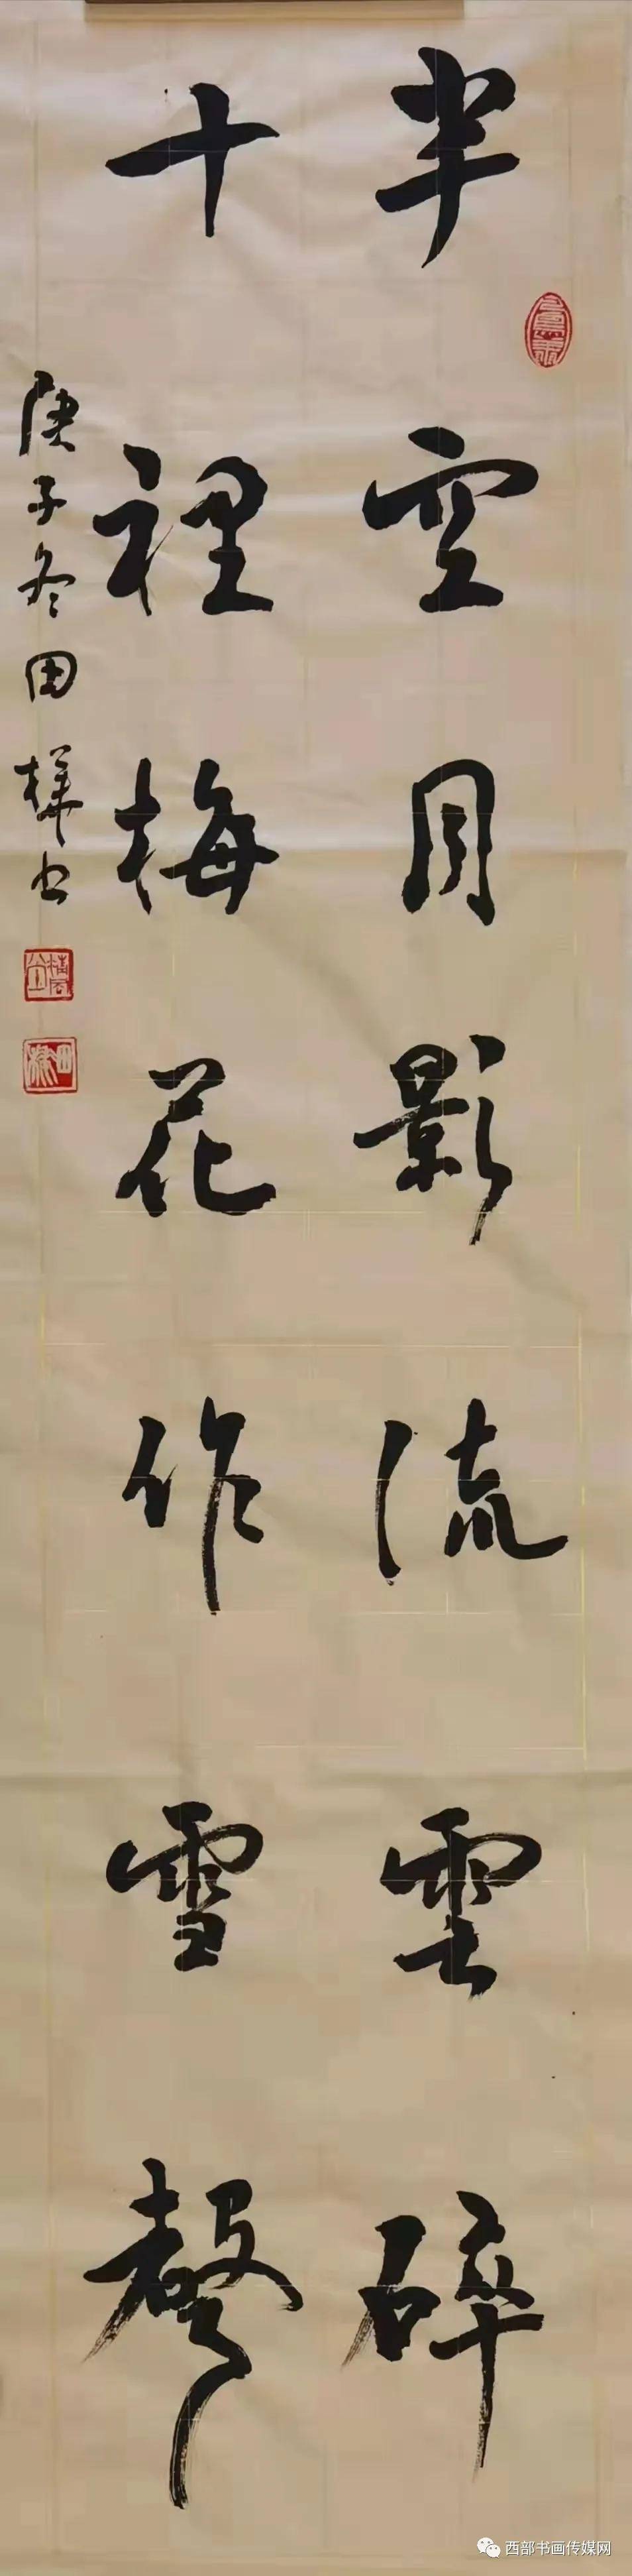 半空月影流雲碎
十裡梅花作雪聲
庚子冬田樺书
西部书画传媒网